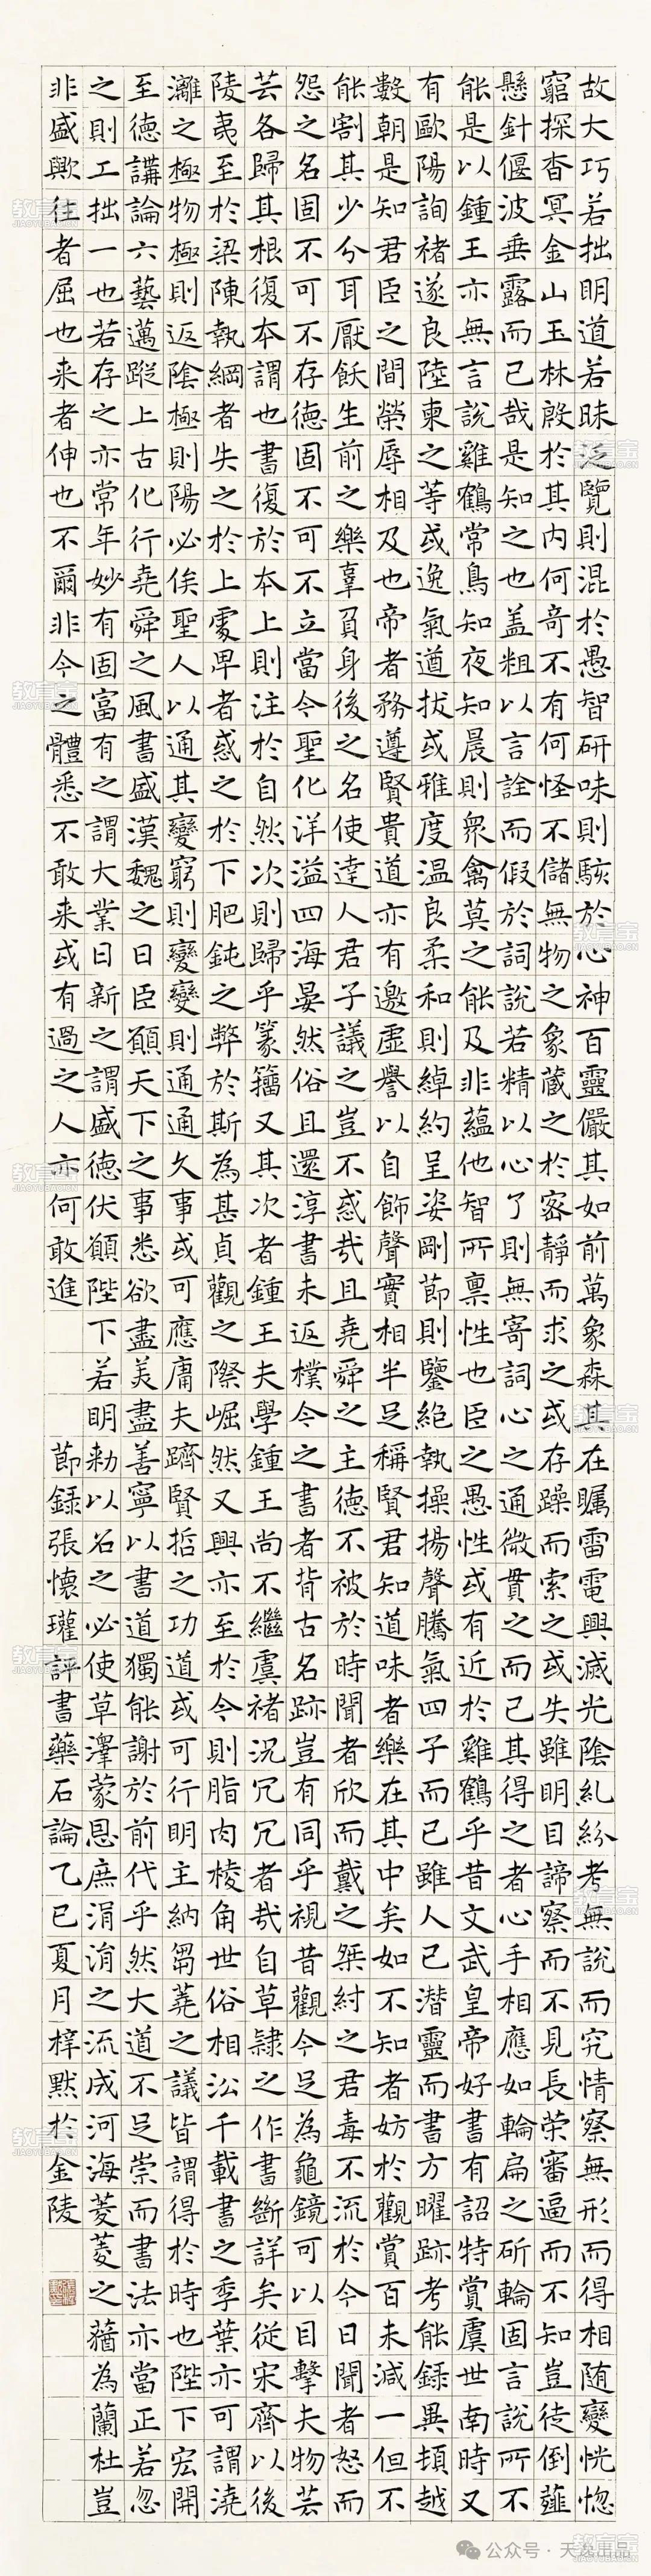 故大巧若拙明道若昧泛覽則混於愚智研味則駭於心神百靈儼其如前萬象森其在矚雷電興滅光陰糺紛考無說而究情察無形而得相随變恍惚
窮探杳冥金山玉林殷於其内何奇不有何怪不儲無物之象藏之於密靜而求之或存躁而索之或失雖明目諦察而不見長榮審逼而不知豈徒倒薤
懸針偃波垂露而已哉是知之也盖粗以言詮而假於詞說若精以心了則無寄詞心之通微貫之而已其得之者心手相應如輪扁之斫輪固言說所不
能是以鍾王亦無言說雞鶴常鳥知夜知晨則衆禽莫之能及非蘊他智所稟性也臣之愚性或有近於雞鶴乎昔文武皇帝好書有詔特賞虞世南時又
有歐陽詢褚遂良陸柬之等或逸氣遒拔或雅度温良柔和則綽約呈姿剛節則鑒絕執操揚聲騰氣四子而已雖人已潜靈而書方曜跡考能録異頓越
數朝是知君臣之間榮辱相及也帝者務遵賢貴道亦有邀虛譽以自飾聲實相半足稱賢君知道味者樂在其中矣如不知者妨於觀賞百未減一但不
能割其少分耳厭飫生前之樂辜負身後之名使達人君子議之豈不惑哉且堯舜之主德不被於時聞者欣而戴之桀紂之君毒不流於今日聞者怒而
怨之名固不可不存德固不可不立當今聖化洋溢四海晏然俗且還淳書未返樸今之書者背古名跡豈有同乎視昔觀今足為龜鏡可以目擊夫物芸
芸各歸其根復本謂也書復於本上則注於自然次則歸乎篆籀又其次者鍾王夫學鍾王尚不繼虞褚況冗冗者哉自草隸之作書斷詳矣從宋齊以後
陵夷至於梁陳執綱者失之於上處卑者惑之於下肥鈍之弊於斯為甚貞觀之際崛然又興亦至於今則脂肉棱角世俗相沿千載書之季葉亦可謂澆
灕之極物極則返陰極則陽必俟聖人以通其變窮則變變則通通久事或可應庸夫躋賢哲之功道或可行明主納芻蕘之議皆謂得於時也陛下宏開
至德講論六藝邁蹤上古化行堯舜之風書盛漢魏之日臣願天下之事悉欲盡美盡善寧以書道獨能謝於前代乎然大道不足崇而書法亦當正若忽
之則工拙一也若存之亦常年妙有固富有之謂大業日新之謂盛德伏願陛下若明勑以名之必使草澤蒙恩庶涓涓之流成河海菱菱之薔為蘭杜豈
非盛歟往者屈也来者伸也不爾非今之體悉不敢来或有過之人亦何敢進
節録張懷瓘評書藥石論乙巳夏月梓默於金陵
教育宝
JIAOYUBAO.CN
公众号·天逸出品